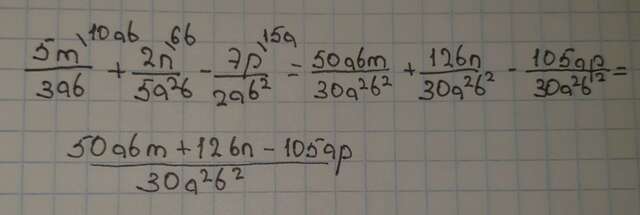 5m\10ab/3ab + 2n\6b/5a²b − 7p\15a/2ab² = 50abm/30a²b² + 12bn/30a²b² − 105ap/30a²b² =
50abm + 12bn − 105ap/30a²b²